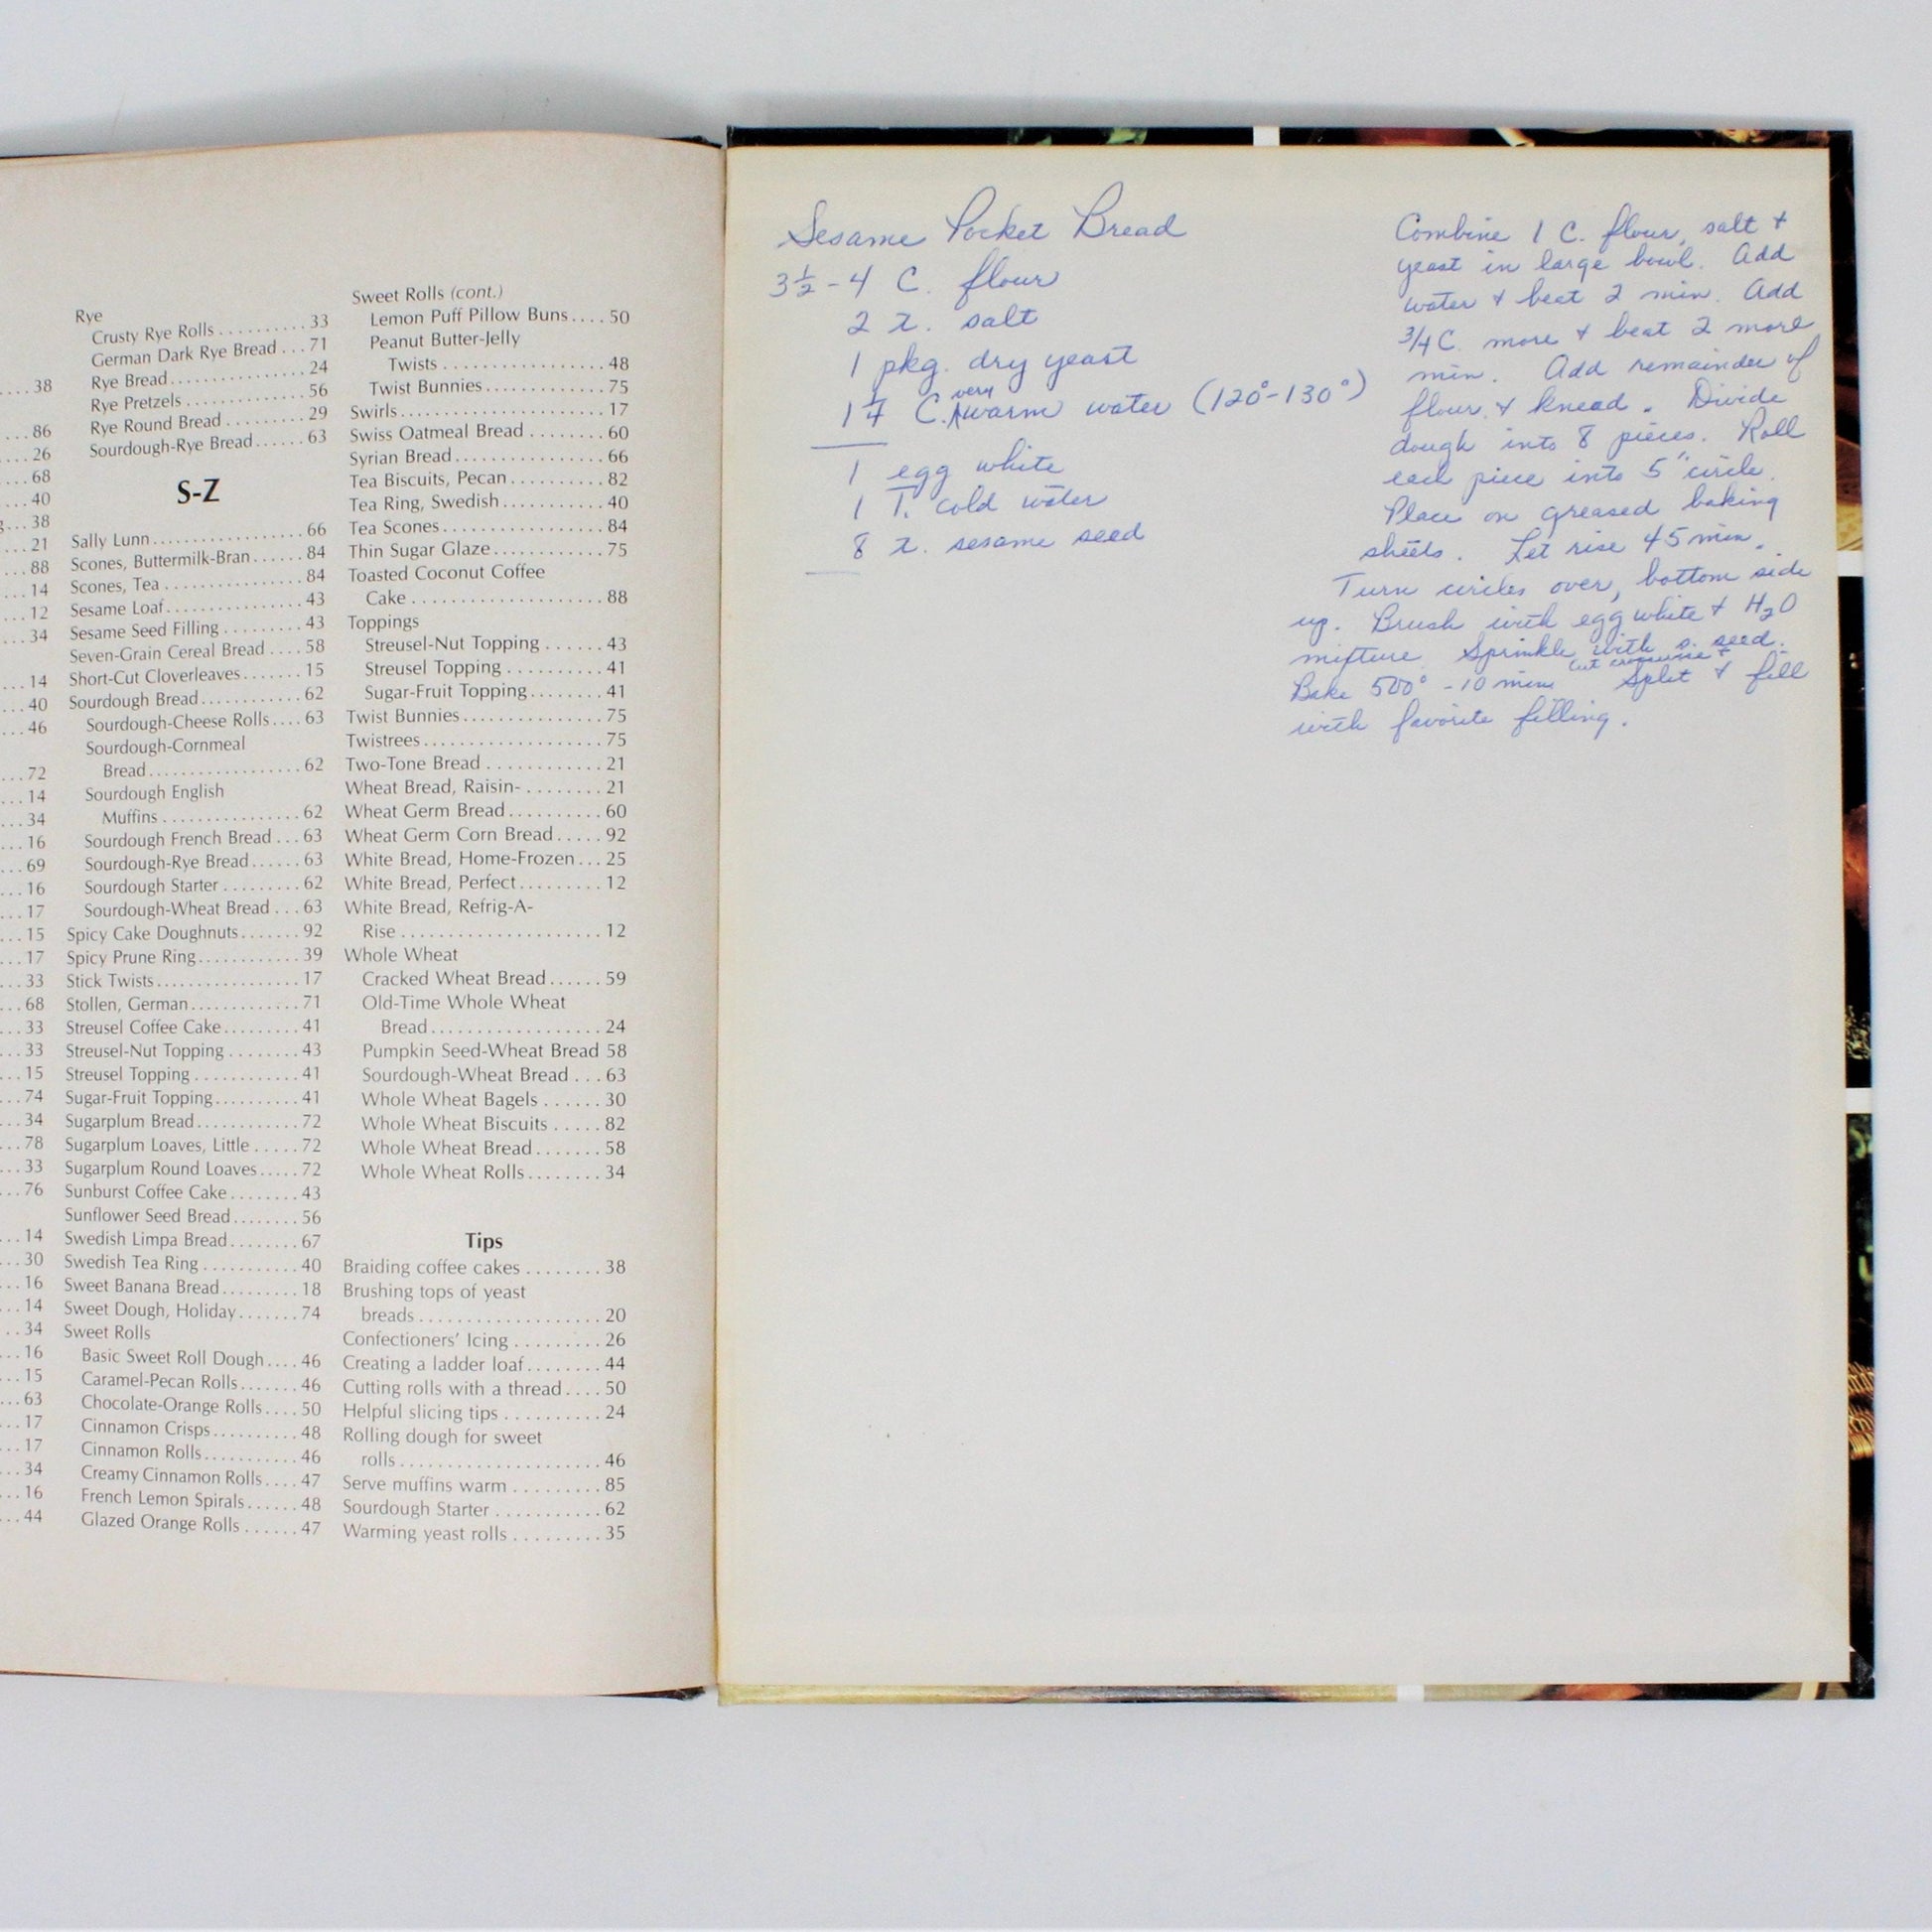 ....38
...86
....26
...68
....40
g...38
...21
...88
...14
...12
...34
...14
...40
...46
...72
...14
...34
...16
...69
...16
...17
...15
...17
...33
...68
...33
...33
...15
...74
...34
...78
...33
...76
...14
...30
...16
...14
..34
...16
...15
...63
...17
...17
...34
...16
...44
Rye
Crusty Rye Rolls..........33
German Dark Rye Bread...71
Rye Bread................24
Rye Pretzels...............56
Rye Round Bread..........29
Sourdough-Rye Bread......63
S-Z
Sally Lunn...................66
Scones, Buttermilk-Bran......84
Scones, Tea..................84
Sesame Loaf.................43
Sesame Seed Filling..........43
Seven-Grain Cereal Bread....58
Short-Cut Cloverleaves.......15
Sourdough Bread............62
Sourdough-Cheese Rolls....63
Sourdough-Cornmeal
Bread..................62
Sourdough English
Muffins................62
Sourdough French Bread...63
Sourdough-Rye Bread......63
Sourdough Starter.........62
Sourdough-Wheat Bread...63
Spicy Cake Doughnuts.......92
Spicy Prune Ring............39
Stick Twists.................17
Stollen, German.............71
Streusel Coffee Cake.........41
Streusel-Nut Topping........43
Streusel Topping............41
Sugar-Fruit Topping..........41
Sugarplum Bread............72
Sugarplum Loaves, Little.....72
Sugarplum Round Loaves.....72
Sunburst Coffee Cake........43
Sunflower Seed Bread........56
Swedish Limpa Bread........67
Swedish Tea Ring...........40
Sweet Banana Bread.........18
Sweet Dough, Holiday.......74
Sweet Rolls
Basic Sweet Roll Dough....46
Caramel-Pecan Rolls.......46
Chocolate-Orange Rolls....50
Cinnamon Crisps..........48
Cinnamon Rolls...........46
Creamy Cinnamon Rolls....47
French Lemon Spirals......48
Glazed Orange Rolls......47
Sweet Rolls (cont.)
Lemon Puff Pillow Buns....50
Peanut Butter-Jelly
Twists.................48
Twist Bunnies.............75
Swirls......................17
Swiss Oatmeal Bread........60
Syrian Bread................66
Tea Biscuits, Pecan..........82
Tea Ring, Swedish...........40
Tea Scones.................84
Thin Sugar Glaze............75
Toasted Coconut Coffee
Cake.....................88
Toppings
Streusel-Nut Topping......43
Streusel Topping..........41
Sugar-Fruit Topping.......41
Twist Bunnies...............75
Twistrees...................75
Two-Tone Bread............21
Wheat Bread, Raisin-........21
Wheat Germ Bread..........60
Wheat Germ Corn Bread.....92
White Bread, Home-Frozen...25
White Bread, Perfect.........12
White Bread, Refrig-A-
Rise.....................12
Whole Wheat
Cracked Wheat Bread......59
Old-Time Whole Wheat
Bread..................24
Pumpkin Seed-Wheat Bread 58
Sourdough-Wheat Bread...63
Whole Wheat Bagels......30
Whole Wheat Biscuits.....82
Whole Wheat Bread.......58
Whole Wheat Rolls........34
Tips
Braiding coffee cakes........38
Brushing tops of yeast
breads...................20
Confectioners' Icing.........26
Creating a ladder loaf........44
Cutting rolls with a thread....50
Helpful slicing tips..........24
Rolling dough for sweet
rolls.....................46
Serve muffins warm.........85
Sourdough Starter..........62
Warming yeast rolls.........35
Sesame Pocket Bread
3½-4 C. flour
2 t. salt
1 pkg. dry yeast
1¼ C. very warm water (120°-130°)
1 egg white
1 T. cold water
8 t. sesame seed
Combine 1 C. flour, salt +
yeast in large bowl. Add
water + beat 2 min. Add
3/4 C. more + beat 2 more
min. Add remainder of
flour + knead. Divide
dough into 8 pieces. Roll
each piece into 5" circle.
Place on greased baking
sheets. Let rise 45 min.
Turn circles over, bottom side
up. Brush with egg white + H2O
mixture. Sprinkle with s. seed.
Bake 500° - 10 min. Cut crosswise + Split + fill
with favorite filling.